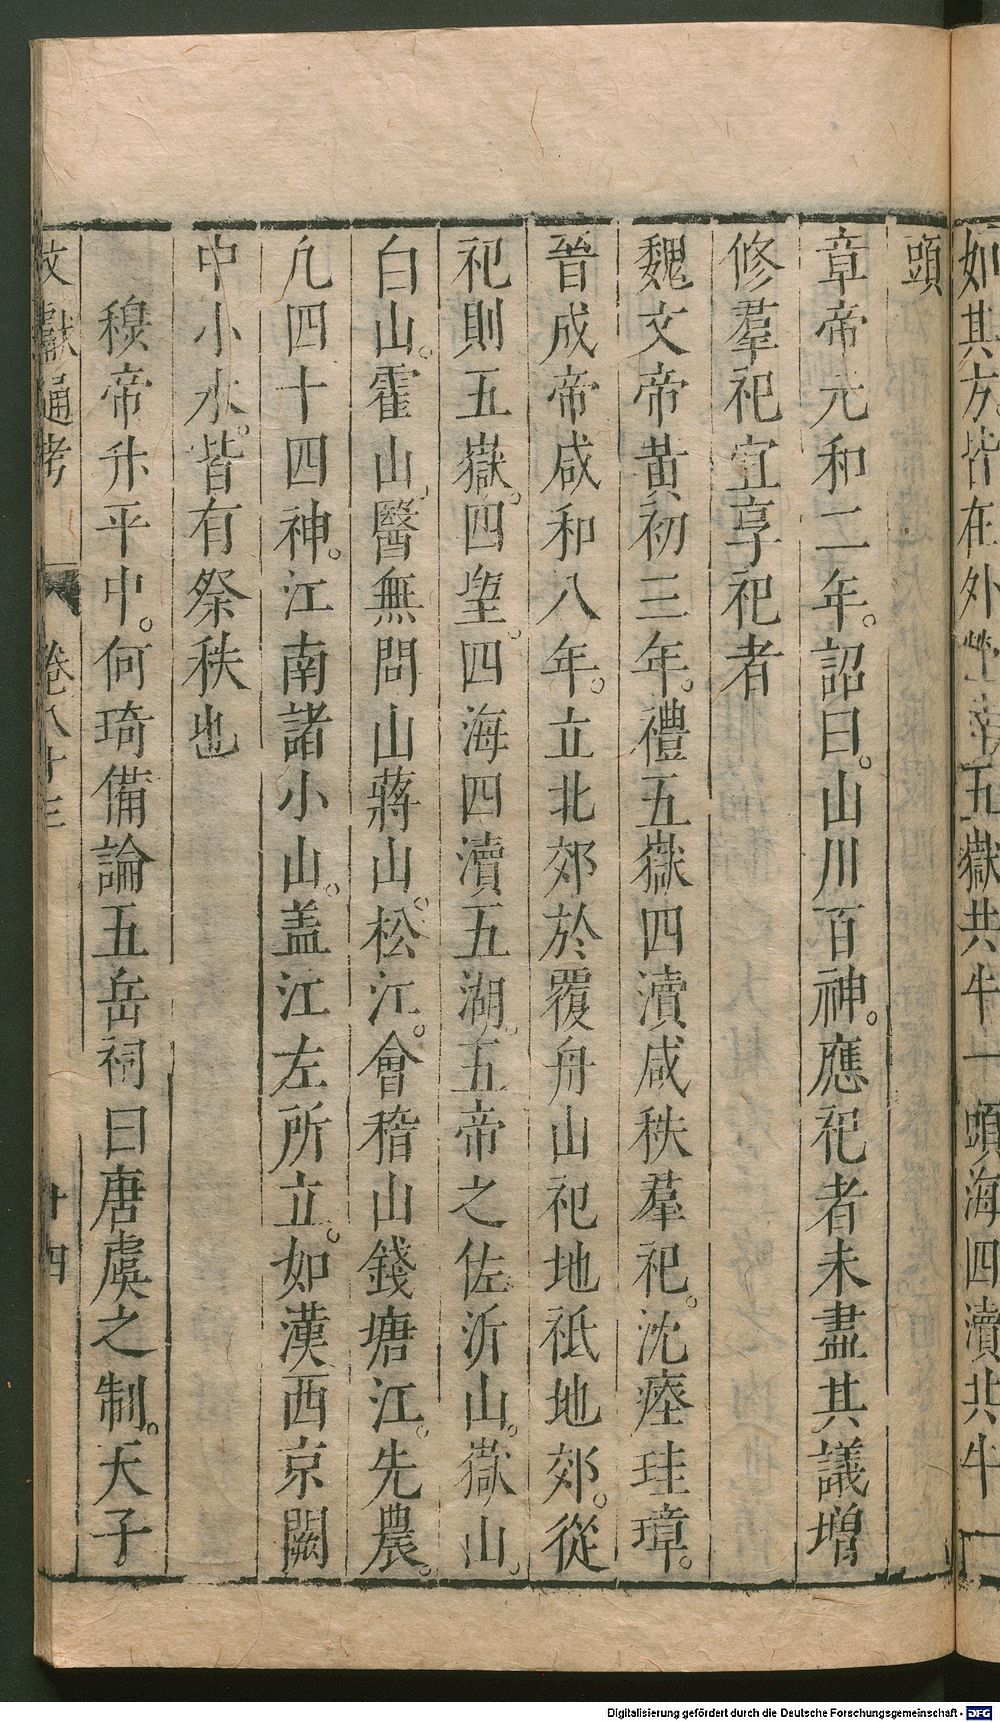 如其方皆在外營內五嶽共牛一頭海四瀆共牛一
頭
章帝元和二年。詔曰。山川百神。應祀者未盡其議增
修羣祀宜享祀者
魏文帝黃初三年。禮五嶽四瀆咸秩羣祀。沈瘞珪璋。
晉成帝咸和八年。立北郊於覆舟山祀地祗地郊。從
祀則五嶽。四望。四海四瀆五湖。五帝之佐沂山。嶽山。
白山。霍山。醫無閭山蔣山。松江。會稽山錢塘江。先農。
凢四十四神。江南諸小山。盖江左所立。如漢西京闕
中小水。皆有祭秩也
穆帝升平中。何琦備論五岳祠曰唐虞之制。天子
文獻通考 卷八十三 十四
Digitalisierung gefördert durch die Deutsche Forschungsgemeinschaft - DFG